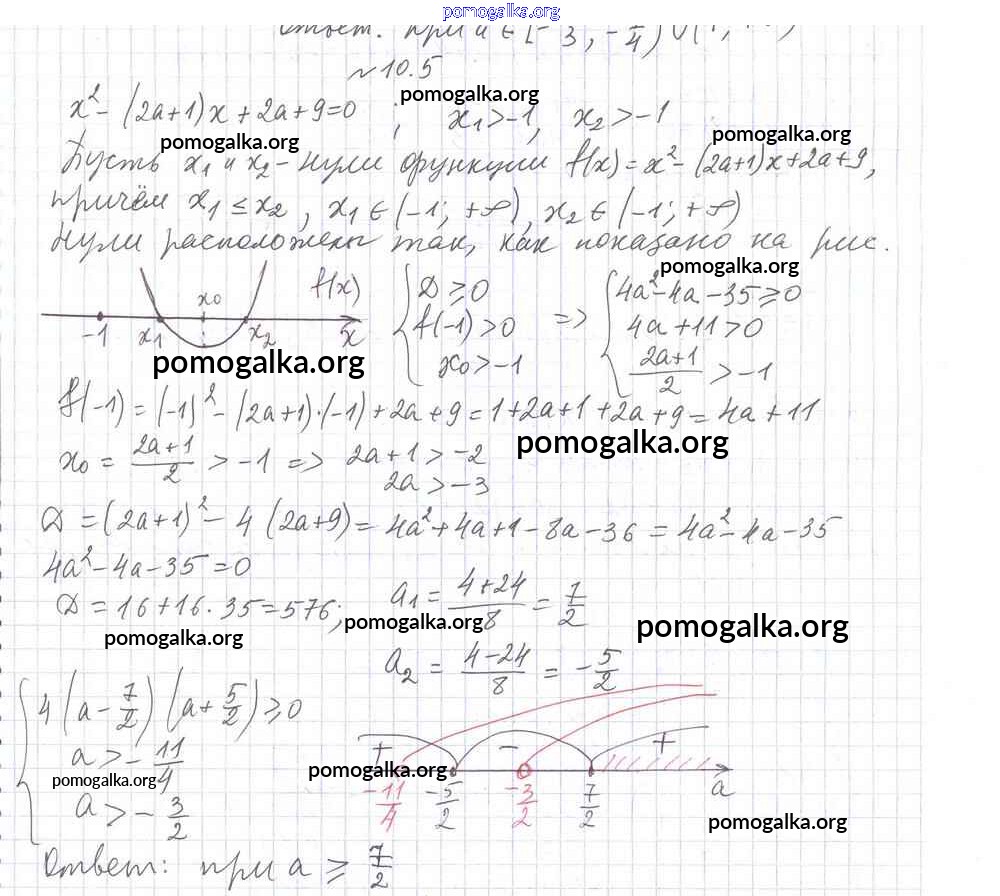 pomogalka.org
Ответ: при a ∈ [-3, -7/4) ∪ (
№10.5
pomogalka.org
x² - (2a+1)x + 2a + 9 = 0 ; x₁ > -1, x₂ > -1
pomogalka.org pomogalka.org
Пусть x₁ и x₂ - нули функции f(x) = x² - (2a+1)x + 2a + 9,
причём x₁ ≤ x₂, x₁ ∈ (-1; +∞), x₂ ∈ (-1; +∞)
Нули расположены так, как показано на рис.
pomogalka.org
-1 x₁ x₀ x₂ x f(x)
{ D ≥ 0 => { 4a² - 4a - 35 ≥ 0
f(-1) > 0 4a + 11 > 0
x₀ > -1 (2a+1)/2 > -1
pomogalka.org
f(-1) = (-1)² - (2a+1)·(-1) + 2a + 9 = 1 + 2a + 1 + 2a + 9 = 4a + 11
pomogalka.org
x₀ = (2a+1)/2 > -1 => 2a + 1 > -2
2a > -3
D = (2a+1)² - 4(2a+9) = 4a² + 4a + 1 - 8a - 36 = 4a² - 4a - 35
4a² - 4a - 35 = 0
D = 16 + 16·35 = 576; a₁ = (4+24)/8 = 7/2
pomogalka.org pomogalka.org pomogalka.org
a₂ = (4-24)/8 = -5/2
{ 4(a - 7/2)(a + 5/2) ≥ 0
a > -11/4
a > -3/2
pomogalka.org pomogalka.org
+ - +
-11/4 -5/2 -3/2 7/2 a
pomogalka.org
Ответ: при a ≥ 7/2